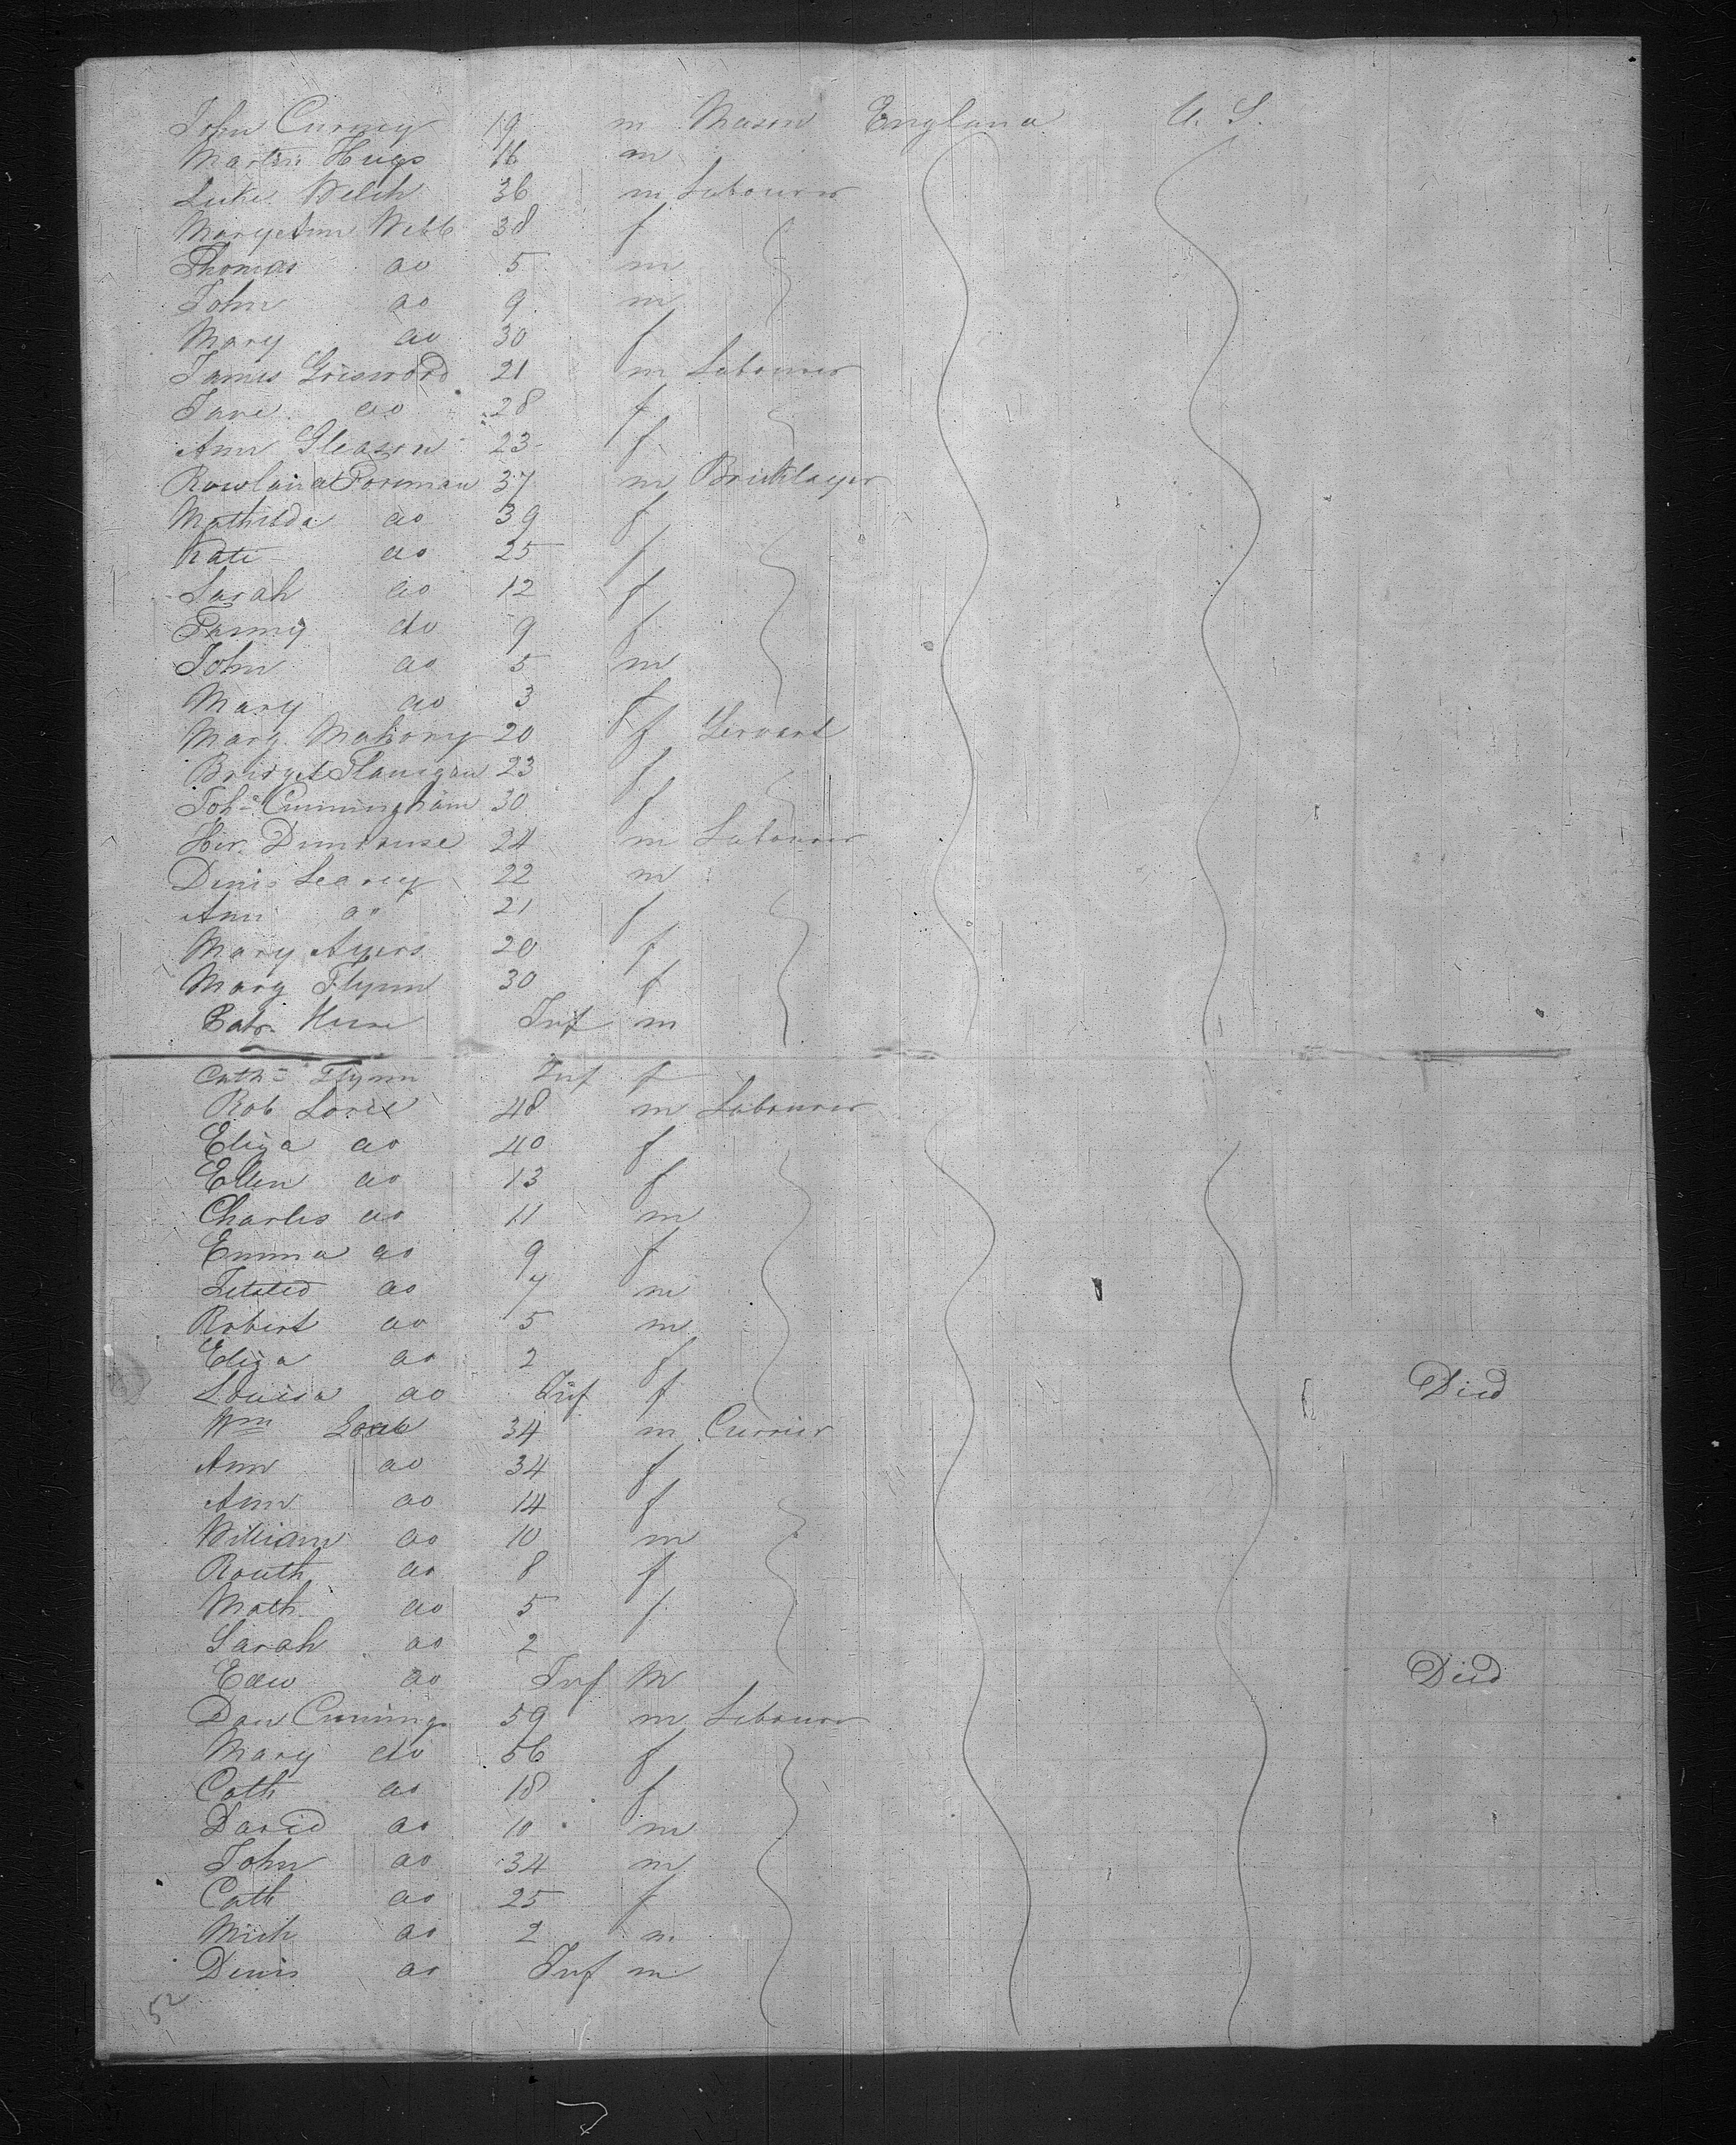 John Curney 19 m Mason England U. S.
Martin Hugs 16 m
Luke Welch 36 m Labourer
Mary Ann Webb 38 f
Thomas do 5 m
John do 9 m
Mary do 30 f
James Grisword 21 m Labourer
Jane do 28 f
Ann Gleason 23 f
Rowland Foreman 37 m Bricklayer
Mathilda do 39 f
Kate do 25 f
Sarah do 12 f
Fanny do 9 f
John do 5 m
Mary do 3 f
Marg. Mahony 20 f Servant
Bridget Flanigan 23 f
Joha Cunningham 30 f
Her. 24 m Labourer
Denis Learey 22 m
Ann do 21 f
Mary Ayers 20 f
Mary Flynn 30 f
Patr. Inf m
Cath Flynn Inf f
Rob 48 m Labourer
Eliza do 40 f
Ellen do 13 f
Charles do 11 m
Emma do 9 f
do 7 m
Robert do 5 m
Eliza do 2 f
Louisa do Inf f Died
Wm 34 m Currier
Ann do 34 f
Ann do 14 f
William do 10 m
Routh do 8 f
Math do 5 f
Sarah do 2
Edw do Inf M Died
Dan Cumings 59 m Labourer
Mary do 56 f
Cath do 18 f
David do 10 m
John do 34 m
Cath do 25 f
Mich do 2 m
Denis do Inf m
52